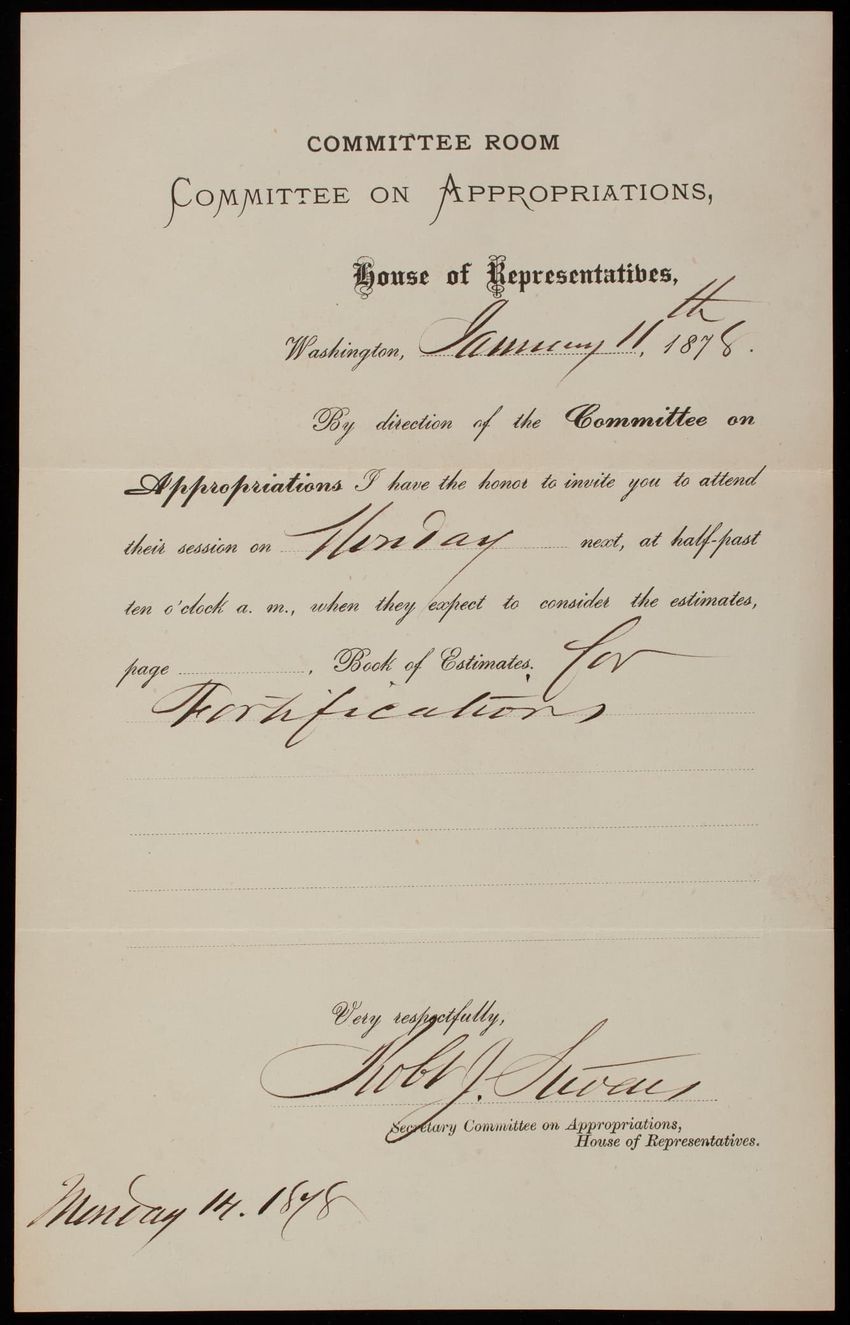 COMMITTEE ROOM
COMMITTEE ON APPROPRIATIONS,
House of Representatives,
Washington, January 11th, 1878.
By direction of the Committee on
Appropriations I have the honor to invite you to attend
their session on Monday next, at half-past
ten o'clock a. m., when they expect to consider the estimates,
page , Book of Estimates. for
Fortifications
Very respectfully,
Robt J. Stevens
Secretary Committee on Appropriations,
House of Representatives.
Monday 14. 1878